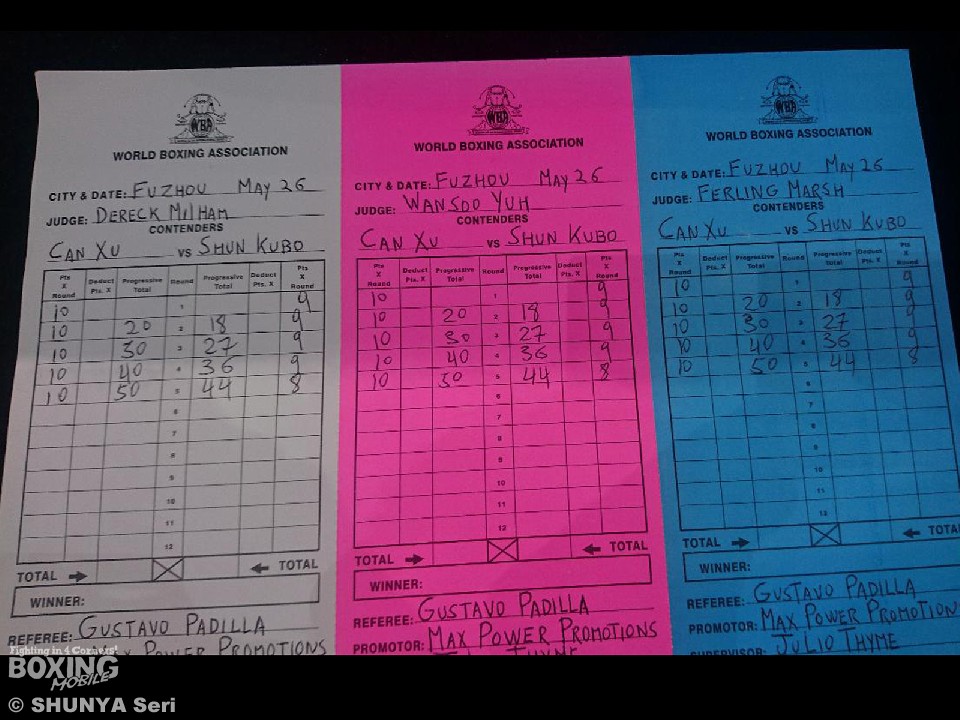 WBA
WORLD BOXING ASSOCIATION
CITY & DATE: FUZHOU MAY 26
JUDGE: DERECK MILHAM
CONTENDERS
CAN XU VS SHUN KUBO
Pts X Round Deduct Pts. X Progressive Total Round Progressive Total Deduct Pts. X Pts X Round
10 1 9
10 20 2 18 9
10 30 3 27 9
10 40 4 36 9
10 50 5 44 8
6
7
8
9
10
11
12
TOTAL TOTAL
WINNER:
REFEREE: GUSTAVO PADILLA
POWER PROMOTIONS
WBA
WORLD BOXING ASSOCIATION
CITY & DATE: FUZHOU MAY 26
JUDGE: WANSOO YUH
CONTENDERS
CAN XU VS SHUN KUBO
Pts X Round Deduct Pts. X Progressive Total Round Progressive Total Deduct Pts. X Pts X Round
10 1 9
10 20 2 18 9
10 30 3 27 9
10 40 4 36 9
10 50 5 44 8
6
7
8
9
10
11
12
TOTAL TOTAL
WINNER:
REFEREE: GUSTAVO PADILLA
PROMOTOR: MAX POWER PROMOTIONS
WBA
WORLD BOXING ASSOCIATION
CITY & DATE: FUZHOU MAY 26
JUDGE: FERLING MARSH
CONTENDERS
CAN XU VS SHUN KUBO
Pts X Round Deduct Pts. X Progressive Total Round Progressive Total Deduct Pts. X Pts X Round
10 1 9
10 20 2 18 9
10 30 3 27 9
10 40 4 36 9
10 50 5 44 8
6
7
8
9
10
11
12
TOTAL TOTAL
WINNER:
REFEREE: GUSTAVO PADILLA
PROMOTOR: MAX POWER PROMOTIONS
SUPERVISOR: JULIO THYME
Fighting in 4 Corners!
BOXING
MOBILE
© SHUNYA Seri